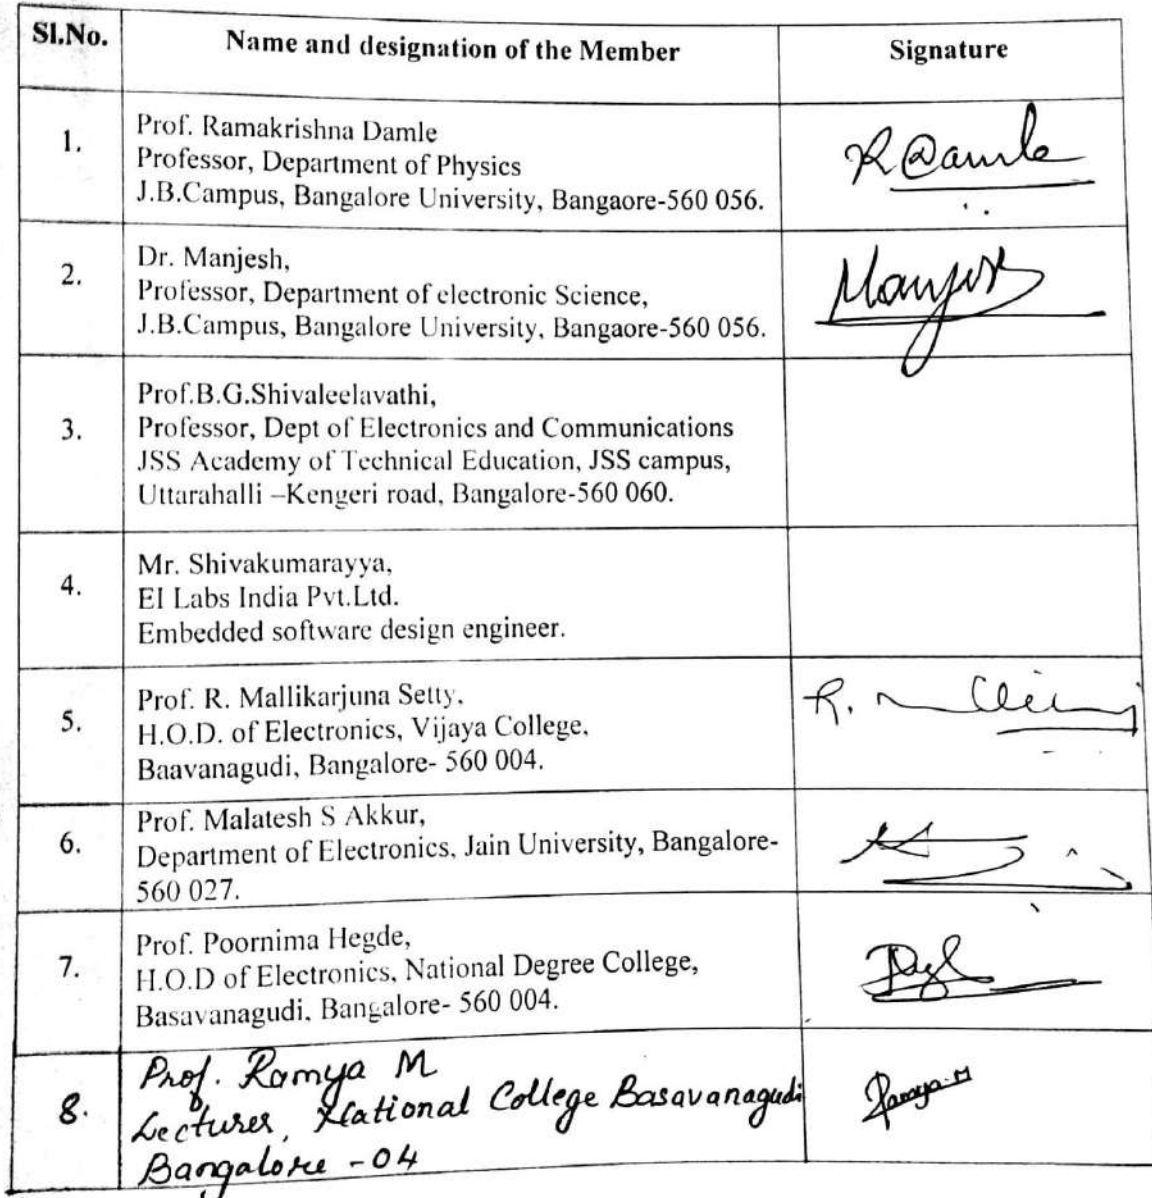 Sl.No. Name and designation of the Member Signature
1. Prof. Ramakrishna Damle
Professor, Department of Physics
J.B.Campus, Bangalore University, Bangaore-560 056.
R Damle
2. Dr. Manjesh,
Professor, Department of electronic Science,
J.B.Campus, Bangalore University, Bangaore-560 056.
Manjesh
3. Prof.B.G.Shivaleelavathi,
Professor, Dept of Electronics and Communications
JSS Academy of Technical Education, JSS campus,
Uttarahalli –Kengeri road, Bangalore-560 060.
4. Mr. Shivakumarayya,
EI Labs India Pvt.Ltd.
Embedded software design engineer.
5. Prof. R. Mallikarjuna Setty,
H.O.D. of Electronics, Vijaya College,
Baavanagudi, Bangalore- 560 004.
R.
6. Prof. Malatesh S Akkur,
Department of Electronics, Jain University, Bangalore-
560 027.
7. Prof. Poornima Hegde,
H.O.D of Electronics, National Degree College,
Basavanagudi, Bangalore- 560 004.
8. Prof. Ramya M
Lecturer, National College Basavanagudi
Bangalore -04
Ramya.M